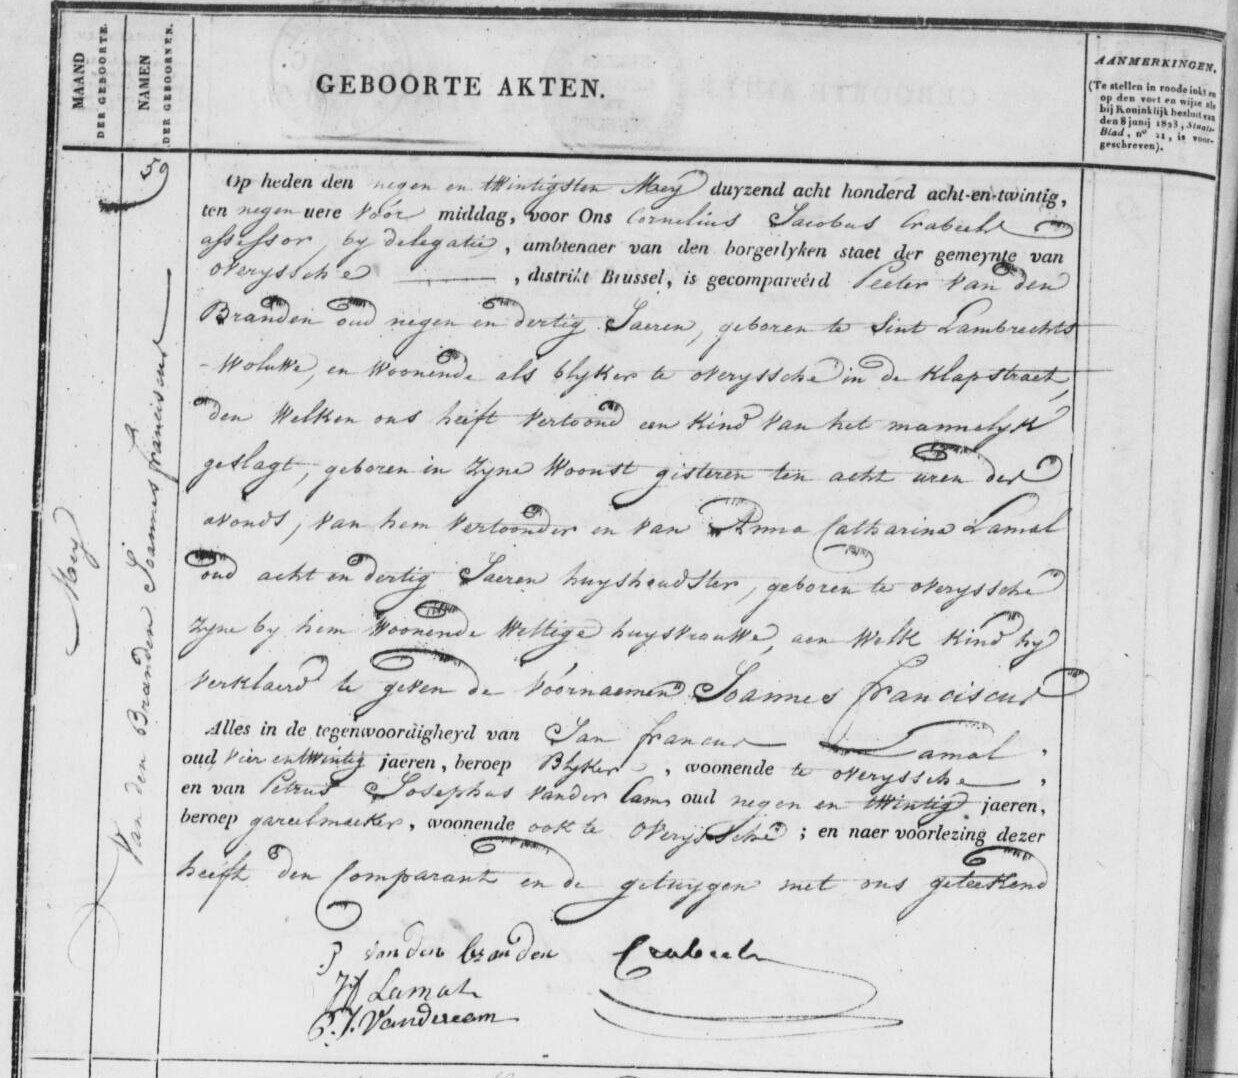 MAAND
DER GEBOORTE.
NAMEN
DER GEBOORNEN.
GEBOORTE AKTEN.
AANMERKINGEN.
(Te stellen in roode inkt en
op den voet en wijse als
bij Koninklijk besluit van
den 8 junij 1823, Staats-
Blad, nº 21, is voor-
geschreven).
Mey
Van den Branden Joannes franciscus
Op heden den negen en twintigsten Mey duyzend acht honderd acht-en-twintig,
ten negen uere vóór middag, voor Ons Cornelius Jacobus Crabeels
assessor, by delegatie, ambtenaer van den borgerlyken staet der gemeynte van
overyssche , distrikt Brussel, is gecompareérd Peeter Van den
Branden oud negen en dertig Jaeren, geboren te Sint Lambrechts
-Woluwe, en woonende als blyker te overyssche in de klapstraet,
den welken ons heeft vertoond een kind van het mannelyk
geslagt, geboren in zyne woonst gisteren ten acht uren der
avonds, van hem vertoonder en van Anna Catharina Lamal
oud acht en dertig Jaeren huyshoudster, geboren te overyssche
zyne by hem woonende wettige huysvrouwe, aen welk kind hy
verklaerd te geven de vóórnaemen Joannes franciscus
Alles in de tegenwoordigheyd van Jan francus Lamal,
oud vier en twintig jaeren, beroep Blyker, woonende te overyssche,
en van Petrus Josephus vander Cam, oud negen en twintig jaeren,
beroep gareelmaeker, woonende ook te overyssche; en naer voorlezing dezer
heeft den Comparant en de getuygen met ons geteekend
P van den branden Crabeels
Jf Lamal
P. J. Vandercam